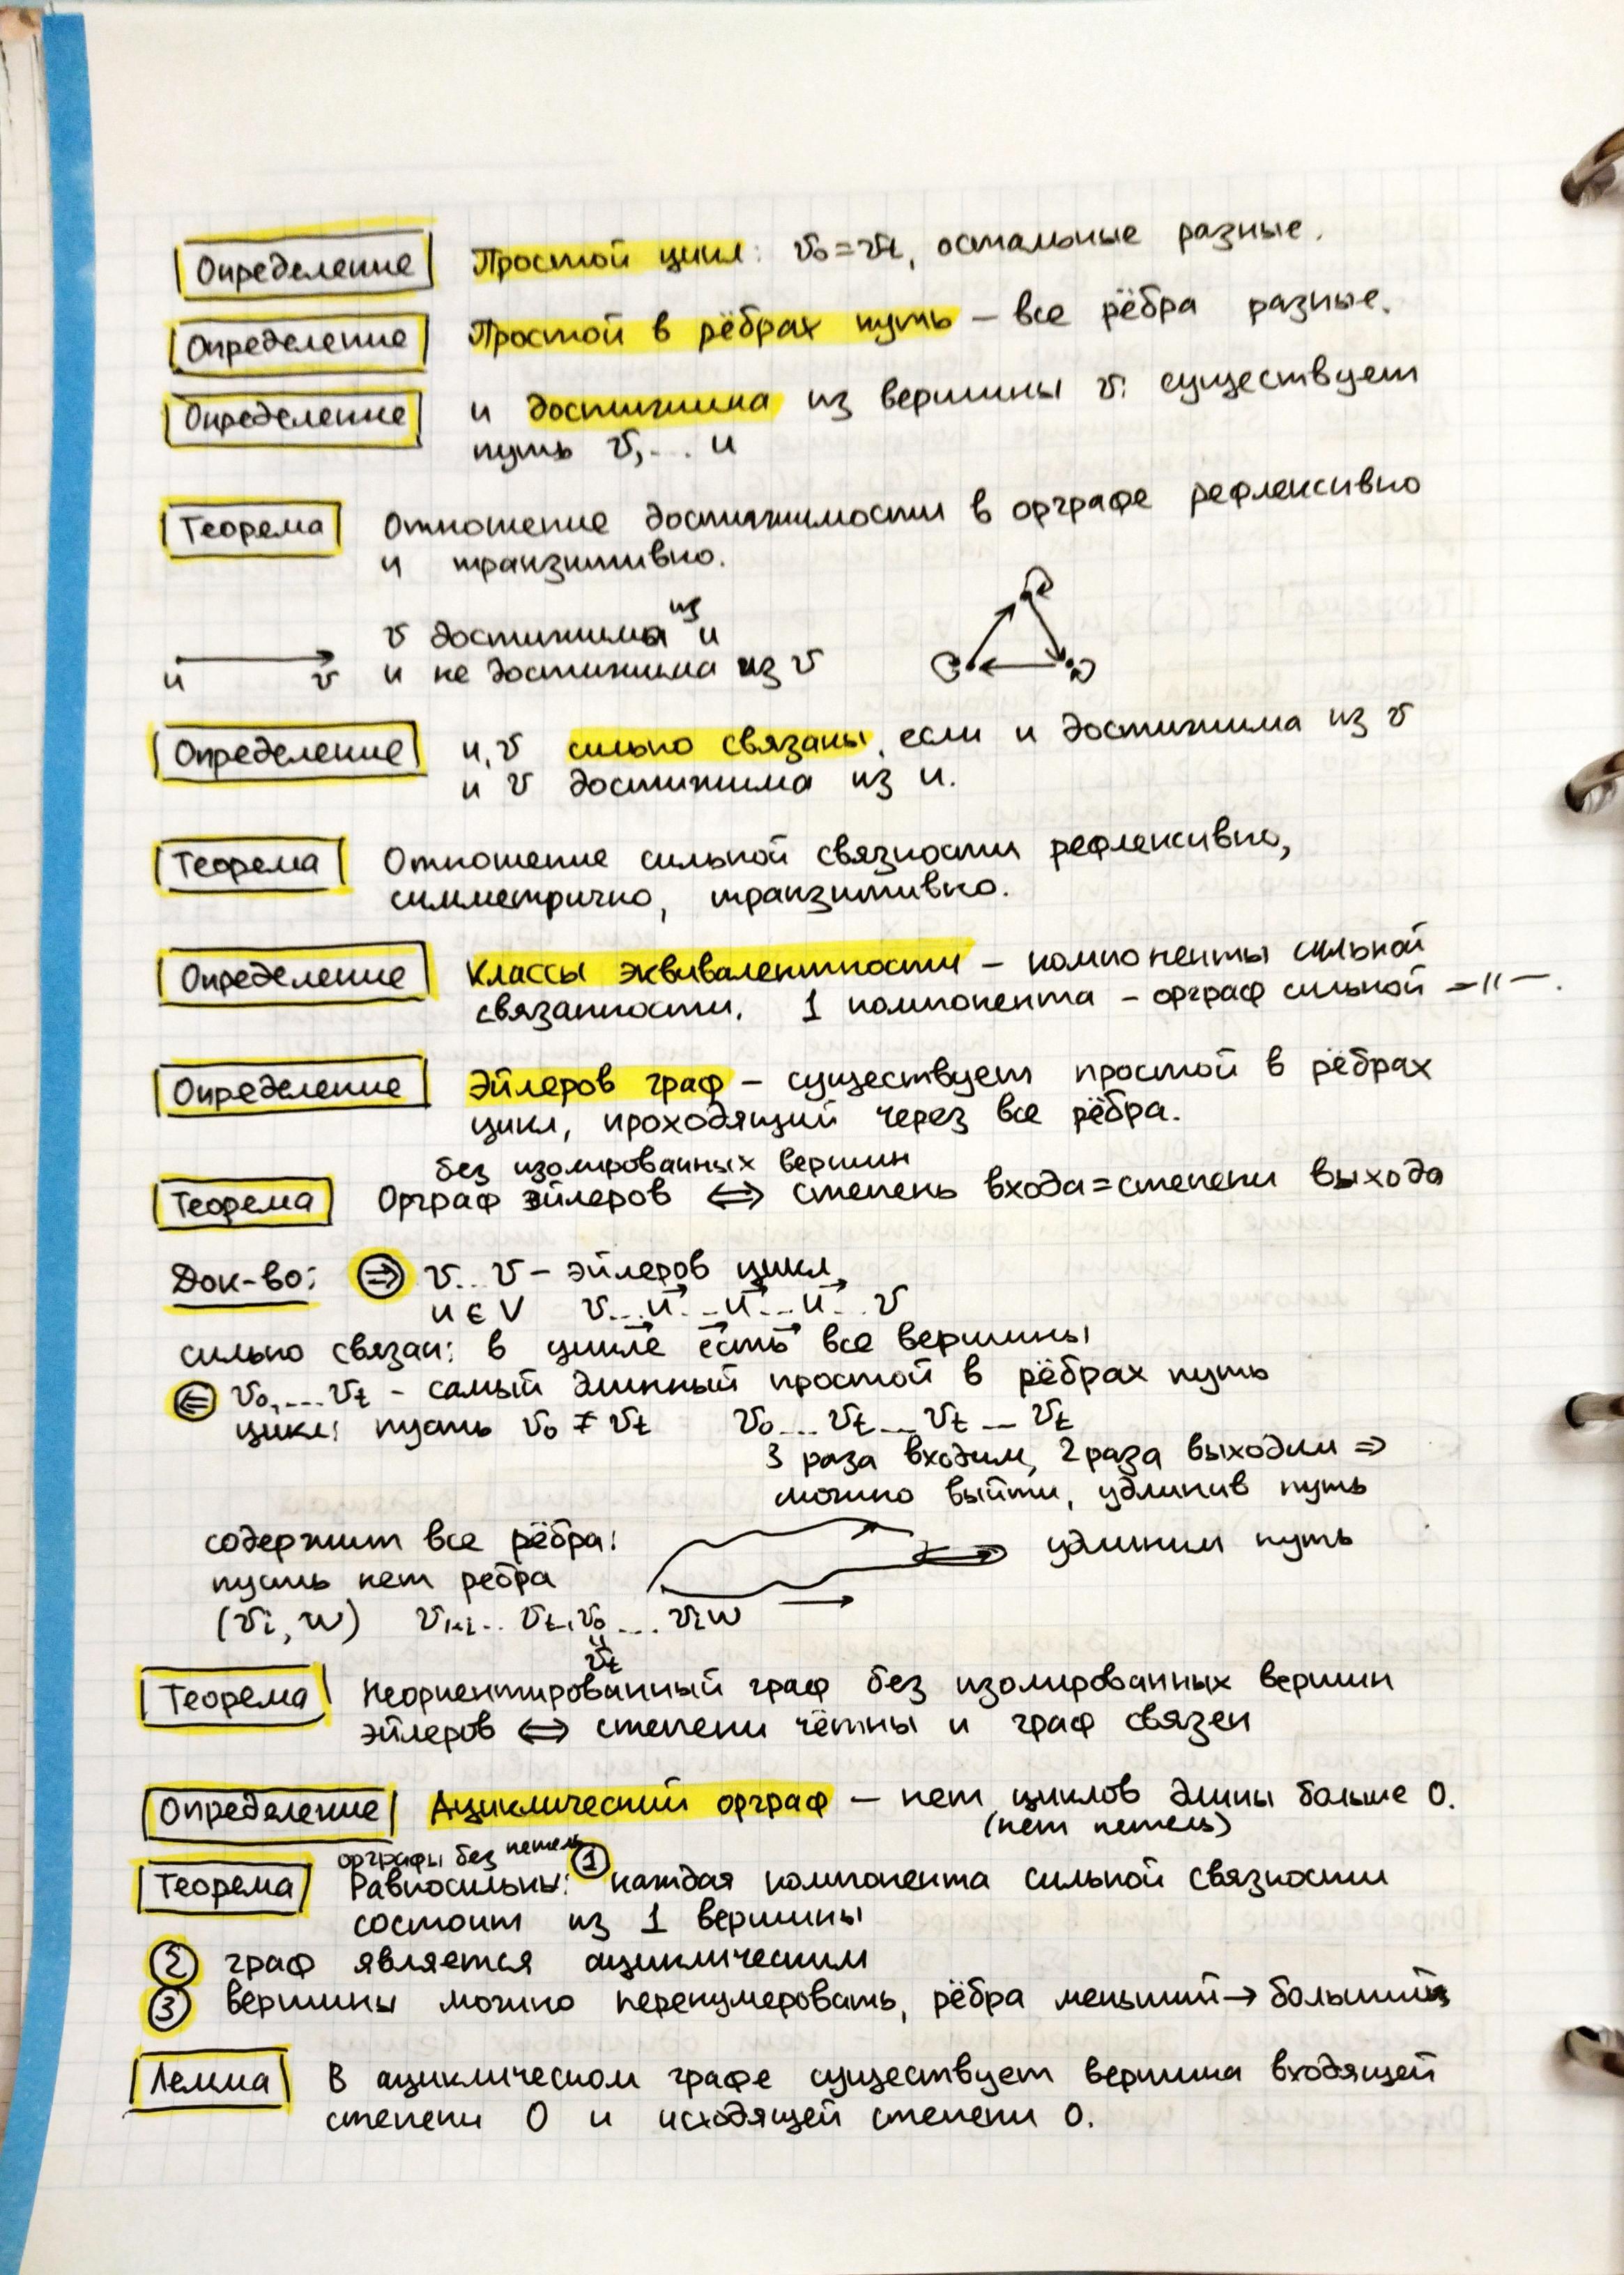 Определение Простой цикл: v₀=vₜ, остальные разные.
Определение Простой в рёбрах путь – все рёбра разные.
Определение u достижима из вершины v: существует
путь v,... u
Теорема Отношение достижимости в орграфе рефлексивно
и транзитивно.
v достижима из u
u v u не достижима из v
Определение u,v сильно связаны, если u достижима из v
и v достижима из u.
Теорема Отношение сильной связности рефлексивно,
симметрично, транзитивно.
Определение Классы эквивалентности – компоненты сильной
связанности. 1 компонента – орграф сильной –〃–.
Определение Эйлеров граф – существует простой в рёбрах
цикл, проходящий через все рёбра.
без изолированных вершин
Теорема Орграф эйлеров ⇔ степень входа=степени выхода
Док-во: ⇒ v...v – эйлеров цикл
u ∈ V v...u...u...u...v
сильно связан: в цикле есть все вершины
⇐ v₀,...vₜ – самый длинный простой в рёбрах путь
цикл: пусть v₀ ≠ vₜ v₀...vₜ...vₜ...vₜ
3 раза входим, 2 раза выходим ⇒
можно выйти, удлинив путь
содержит все рёбра: удлиним путь
пусть нет ребра
(vᵢ, w) vₜ,v₀...vᵢw
"
vₜ
Теорема Неориентированный граф без изолированных вершин
эйлеров ⇔ степени чётны и граф связен
Определение Ациклический орграф – нет циклов длины больше 0.
(нет петель)
орграфы без петель
Теорема Равносильны: ① каждая компонента сильной связности
состоит из 1 вершины
② граф является ациклическим
③ вершины можно перенумеровать, рёбра меньший→больший
Лемма В ациклическом графе существует вершина входящей
степени 0 и исходящей степени 0.